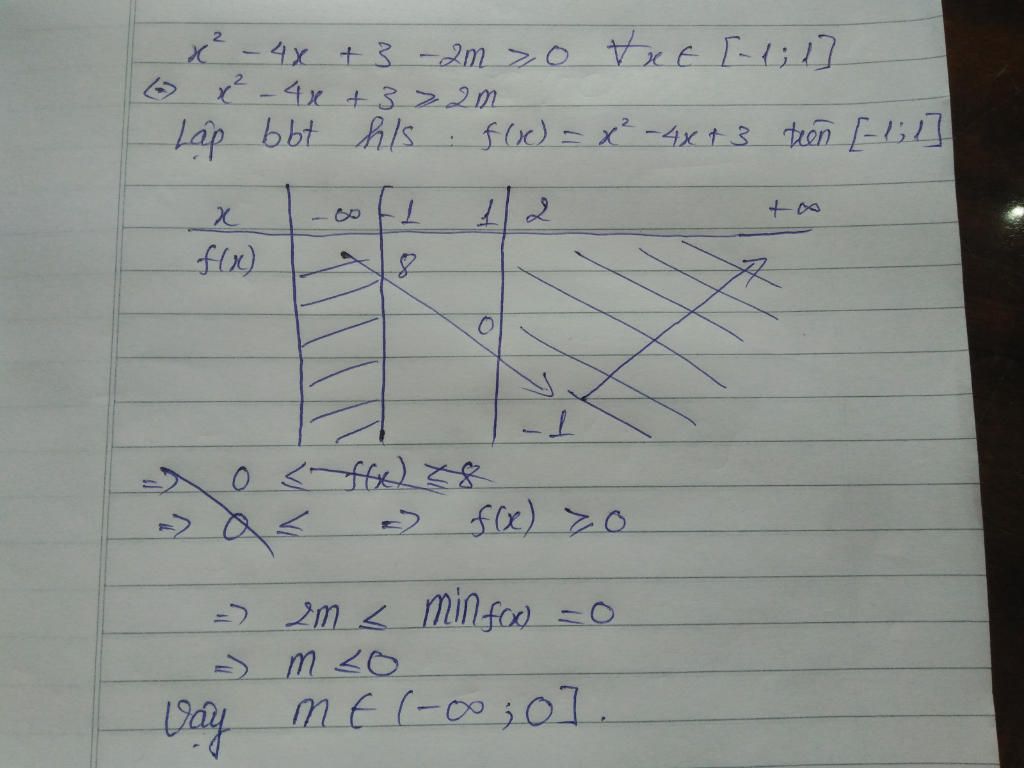 x² - 4x + 3 - 2m ≥ 0 ∀x ∈ [-1; 1]
⇔ x² - 4x + 3 ≥ 2m
Lập bbt h/s : f(x) = x² - 4x + 3 trên [-1; 1]
x -∞ -1 1 2 +∞
f(x) 8
0
-1
⇒ 0 ≤ f(x) ≤ 8
⇒ 0 ≤ ⇒ f(x) ≥ 0
⇒ 2m ≤ min f(x) = 0
⇒ m ≤ 0
Vậy m ∈ (-∞; 0].